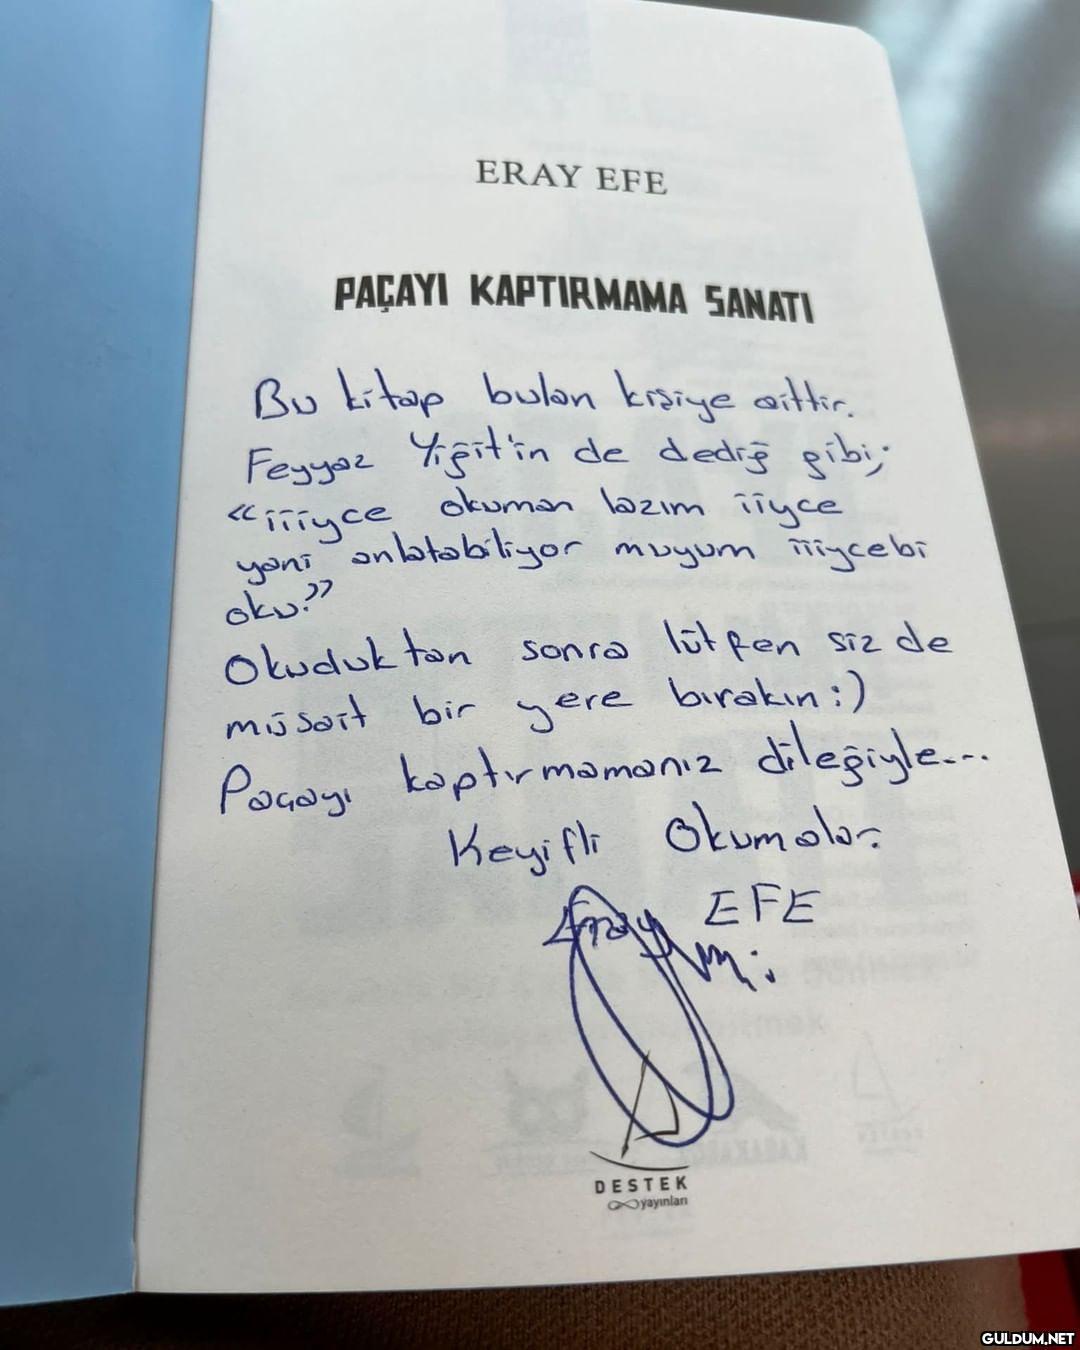 ERAY EFE
PAÇAYI KAPTIRMAMA SANATI
Bu kitap bulan kişiye aittir.
Feyyaz Yiğit'in de dediğ gibi;
“iiiyce okuman lazım iiyce
yani anlatabiliyor muyum iiiycebi
oku?”
Okuduktan sonra lütfen siz de
müsait bir yere bırakın :)
Paçayı kaptırmamanız dileğiyle...
Keyifli Okumalar
Eray EFE
DESTEK
yayınları
GULDUM.NET